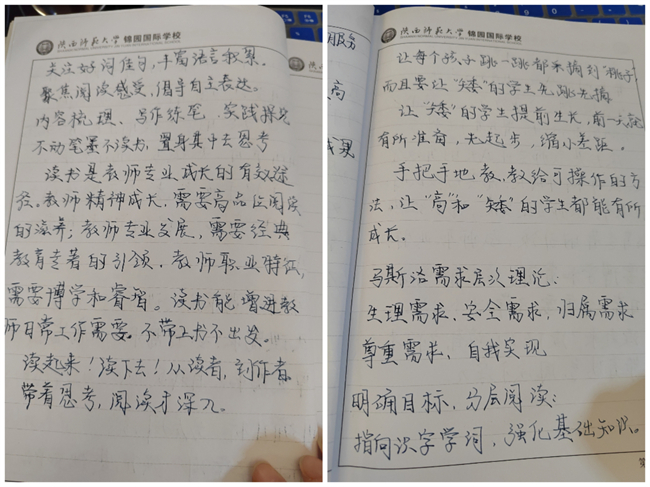 陕西师范大学 锦园国际学校
关注好词佳句,丰富语言积累.
聚焦阅读感受,倡导自主表达。
内容梳理、写作练笔、实践探究
不动笔墨不读书,置身其中去思考
读书是教师专业成长的有效途
径。教师精神成长,需要高品位阅读
的滋养;教师专业发展,需要经典
教育专著的引领.教师职业特征,
需要博学和睿智。读书能增进教
师日常工作需要.不带上书不出发。
读起来!读下去!从读者,到作者.
带着思考,阅读才深入。
服务
高
成果
陕西师范大学 锦园国际学校
让每个孩子跳一跳都来摘到"桃子"
而且要让"矮"的学生先跳先摘.
让"矮"的学生提前生长,前一天就
有所准备,先起步,缩小差距。
手把手地教,教给可操作的方
法,让"高"和"矮"的学生都能有所
成长。
马斯洛需求层次理论:
生理需求、安全需求、归属需求
尊重需求、自我实现
明确目标,分层阅读:
指向识字学词,强化基础知识。
第